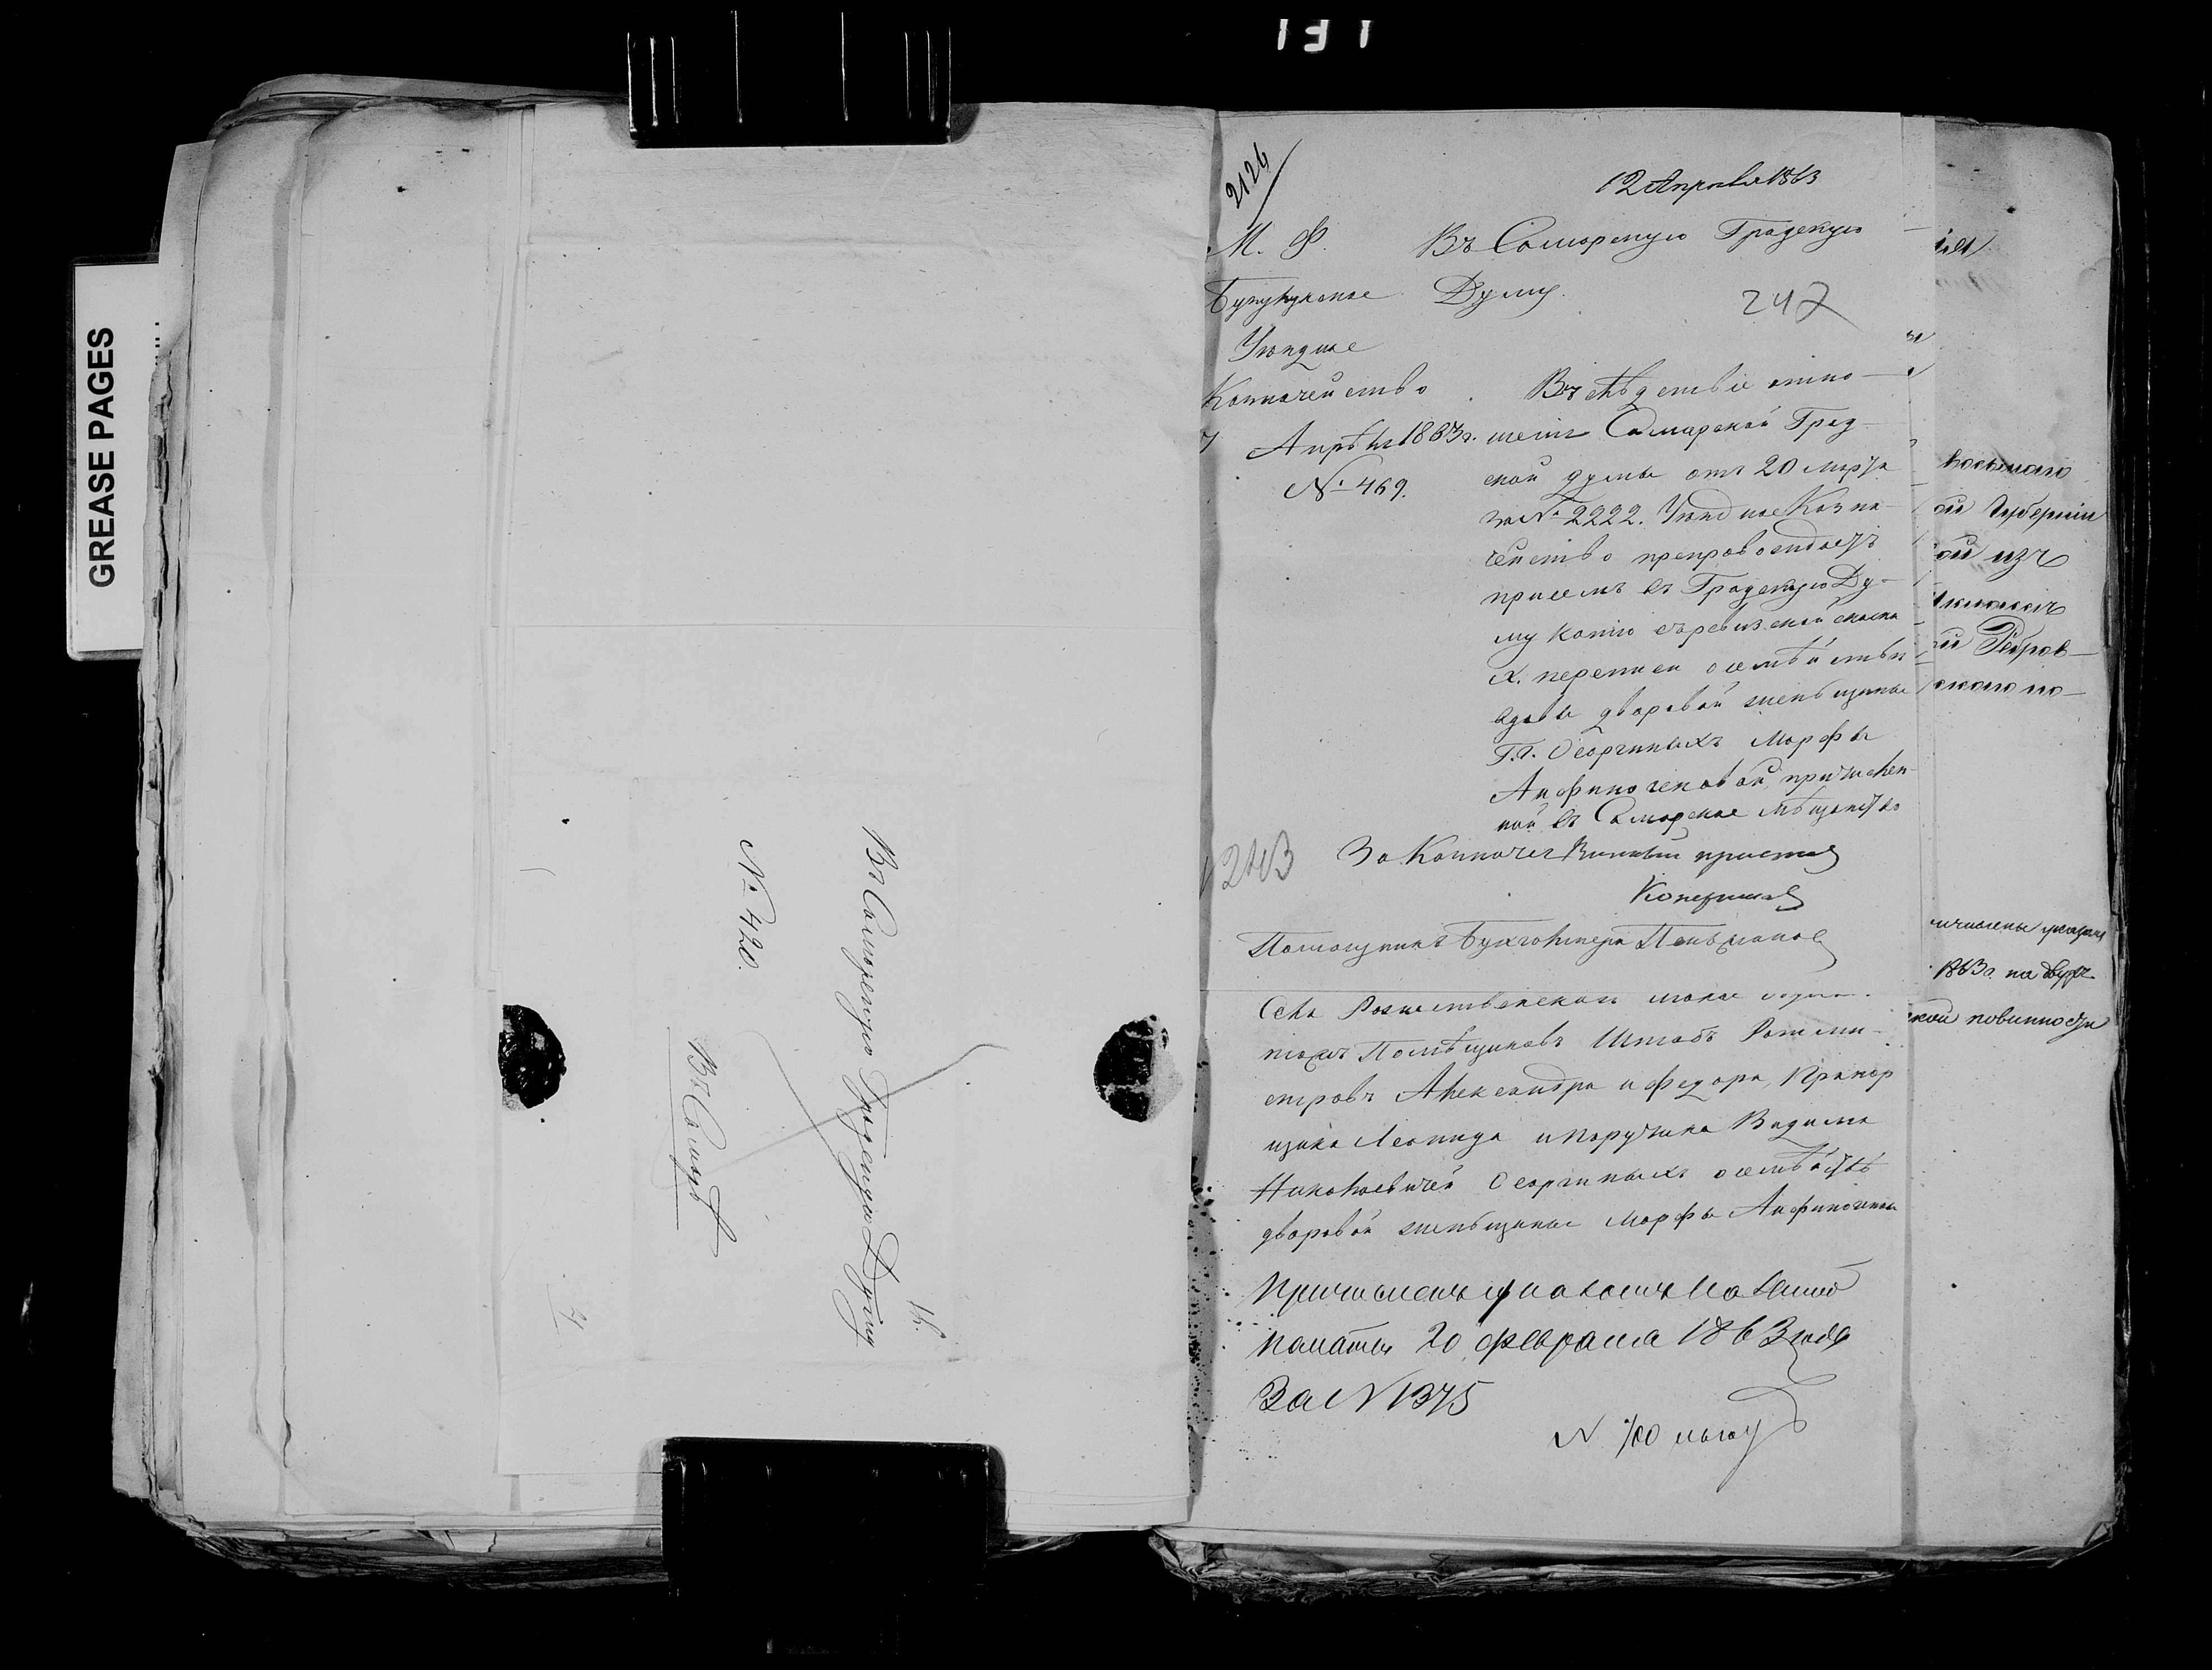 GREASE PAGES
Въ Самарскую Градскую Думу
№ 420.
Въ Самару
2124
12 Апрѣля 1863
М. Ф.
Бузулукское
Уѣздное
Казначейство
7 Апрѣля 1863 г.
№ 469.
Въ Самарскую Градскую
Думу.
247
Въ слѣдствіе отно-
шенія Самарской Град-
ской думы отъ 20 Марта
за № 2222. Уѣздное Казна-
чейство препровождаетъ
при семъ въ Градскую Ду-
му копію съ ревизской сказки
X. переписи о семѣйствѣ
вдовы дворовой женьщины
Г.г. Осоргиныхъ Марфы
Анфиногеновой, причислен-
ной въ Самарское мѣщанство
За Казначея Винный приставъ
243
Помощникъ Бухгалтера
Села Рождественскаго
Помѣщиковъ Штабъ Ротми-
стровъ Александра и Федора, Прапор
щика Леонида и поручика Вадима
Николаевичей Осоргиныхъ о семѣйствѣ
дворовой женьщины Марфы Анфиногеновой
Причислены указомъ Казенной
палаты 20 февраля 1863 года
За № 1375
губерніи
изъ
1863 г. на
повинности